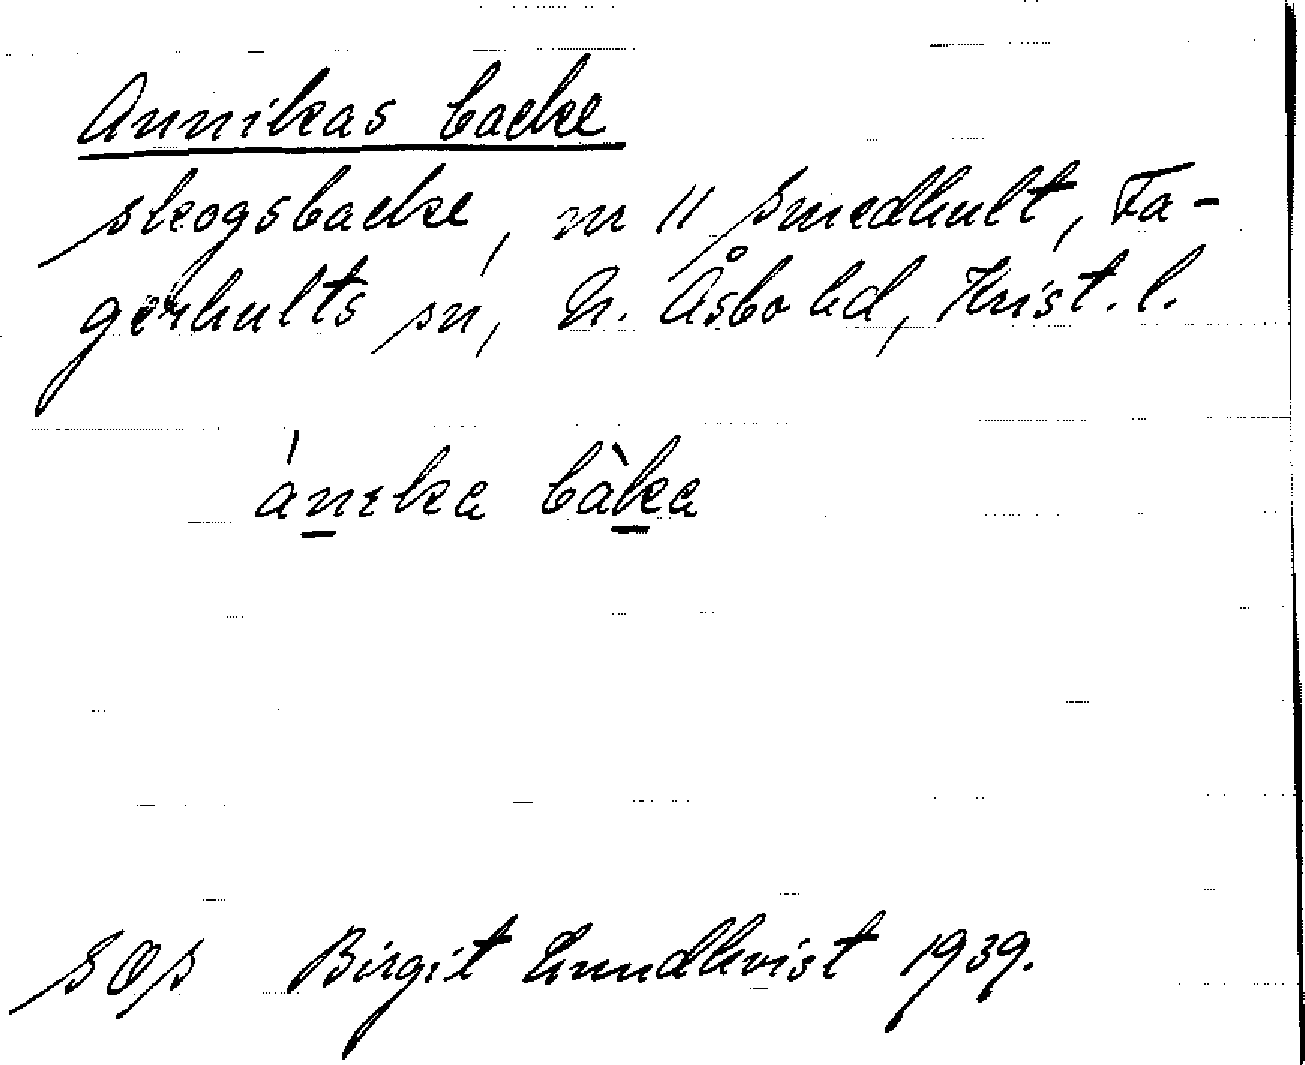 Annikas backe
skogsbacke, nr 11 Smedhult, Fa-
gerhults sn, N. Åsbo hd, Krist. l.
ánɪka bàka
SOS Birgit Lundkvist 1939.